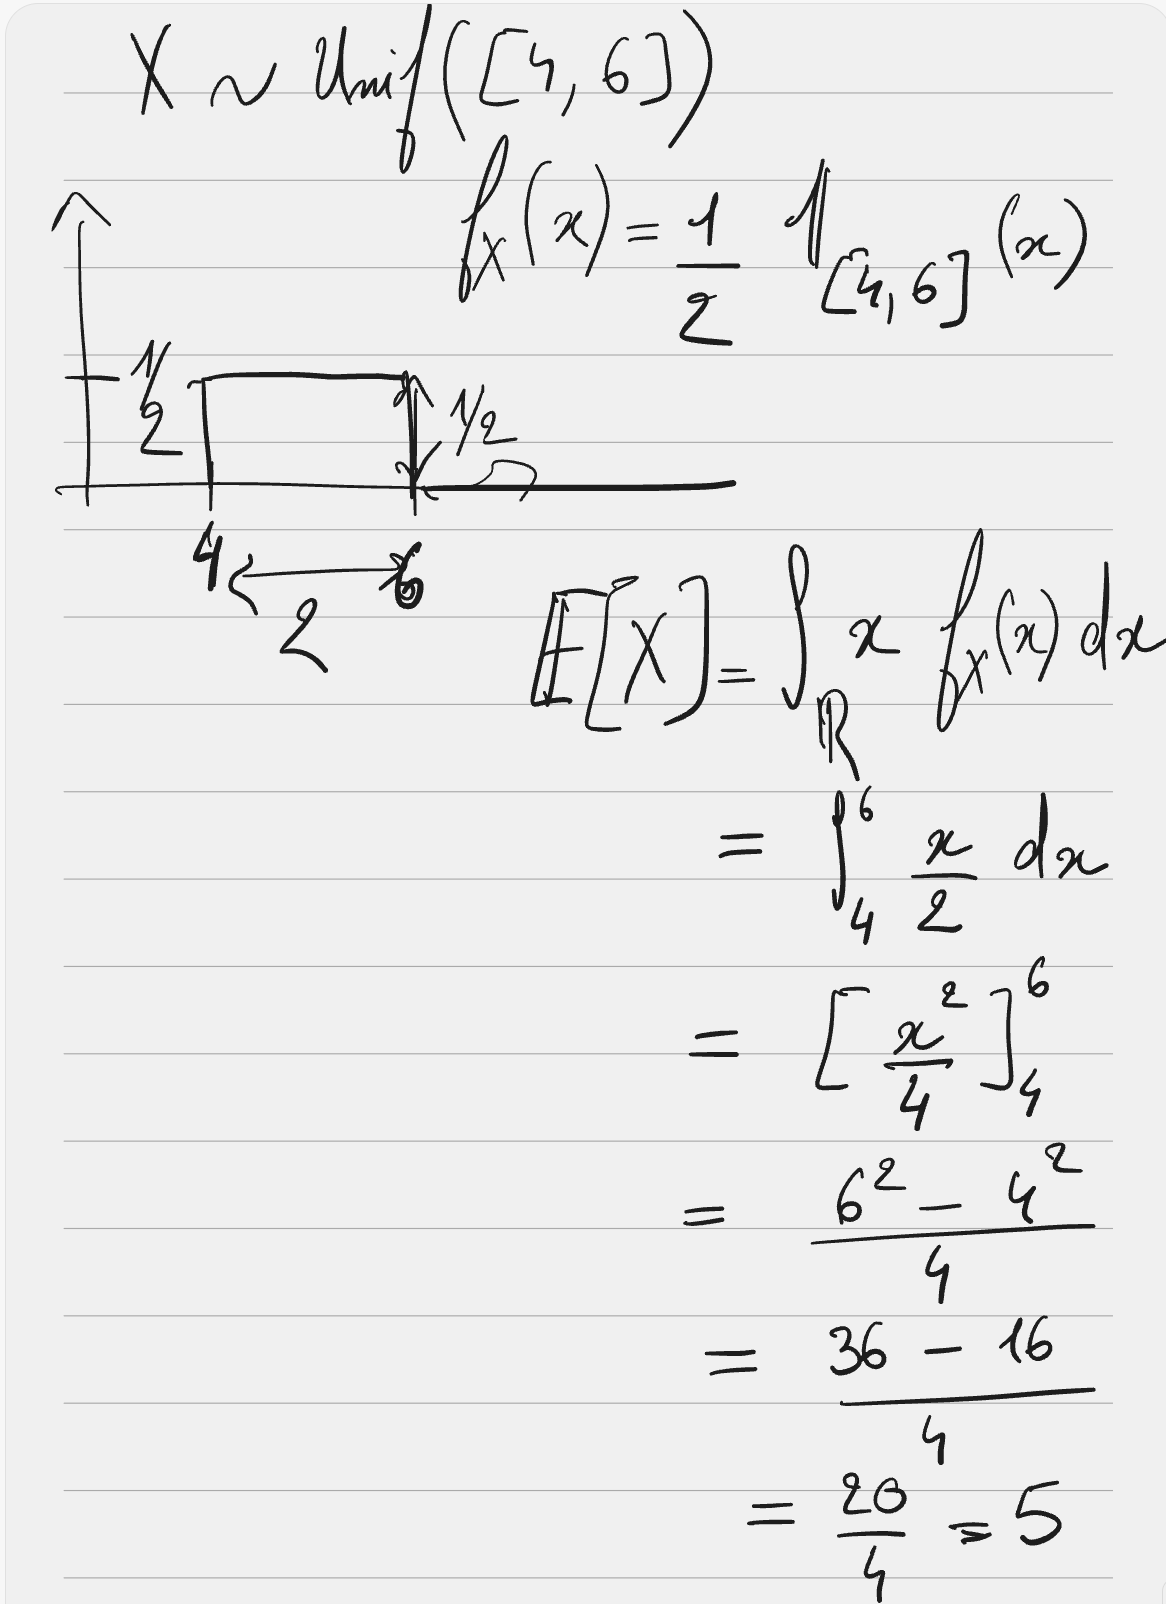 X ~ Unif([4,6])
f_X(x) = 1/2 𝟙_[4,6](x)
1/2
1/2
4 6
2
𝔼[X] = ∫_ℝ x f_X(x) dx
= ∫_4^6 x/2 dx
= [x^2/4]_4^6
= (6^2 - 4^2)/4
= (36 - 16)/4
= 20/4 = 5